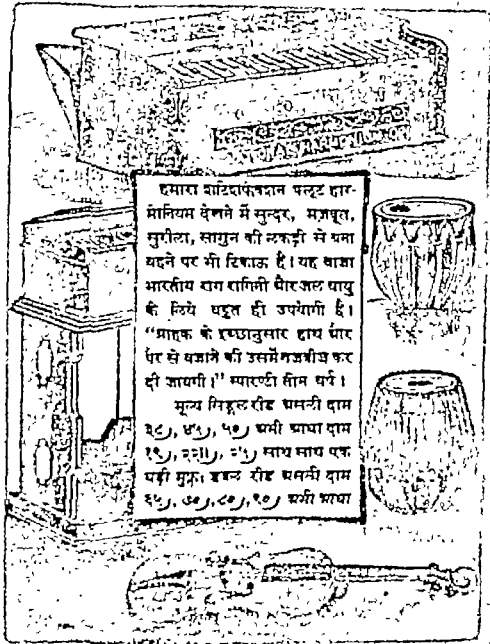 हमारा शाटिशफेक्शन फ्लूट हार-
मोनियम देखने में सुन्दर, मज़बूत,
सुरीला, सागुन की लकड़ी से बना
सस्ते पर भी टिकाऊ है। यह बाजा
भारतीय राग रागिनी और जल वायु
के लिये बहुत ही उपयोगी है।
"ग्राहक के इच्छानुसार हाथ और
पैर से बजाने की उसमें तजवीज कर
दी जायगी।" ग्यारण्टी तीन वर्ष।
मूल्य सिङ्गल रीड असली दाम
३८), ४५), ५०) अभी आधा दाम
१९), २२॥), २५) साथ साथ एक
घड़ी मुफ़्त। डबल रीड असली दाम
६५), ७०), ८०), ९०) अभी आधा